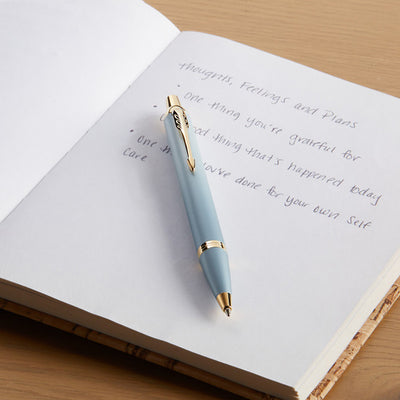 thoughts, Feelings and Plans
• One thing you're grateful for
• good thing that's happened today
• One you've done for your own self
care